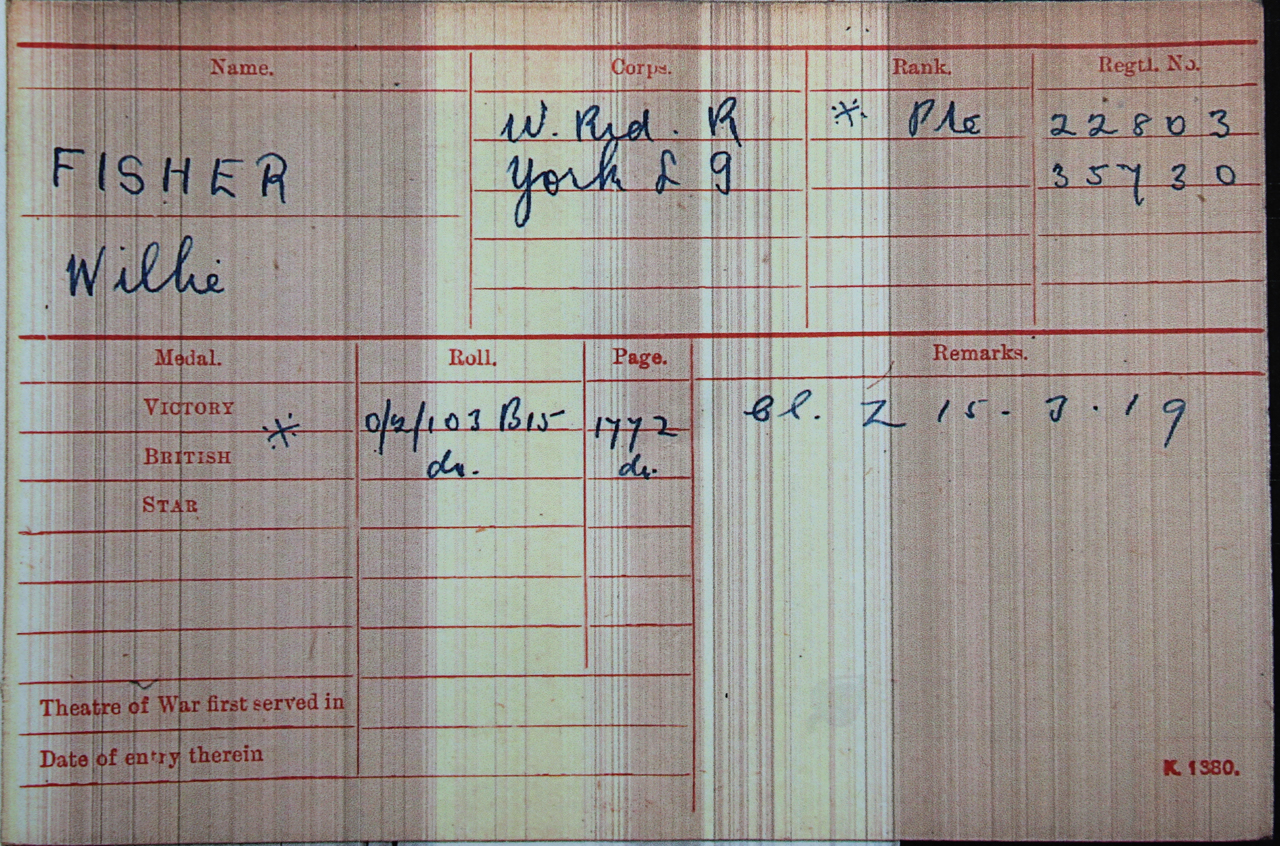 Name. Corps. Rank. Regtl. No.
W. Rid. R * Pte 22803
FISHER York L 9 35730
Willie
Medal. Roll. Page. Remarks.
VICTORY * O/2/103 B15 1772 Cl. Z 15-3.19
BRITISH do. do.
STAR
Theatre of War first served in
Date of entry therein
K. 1380.